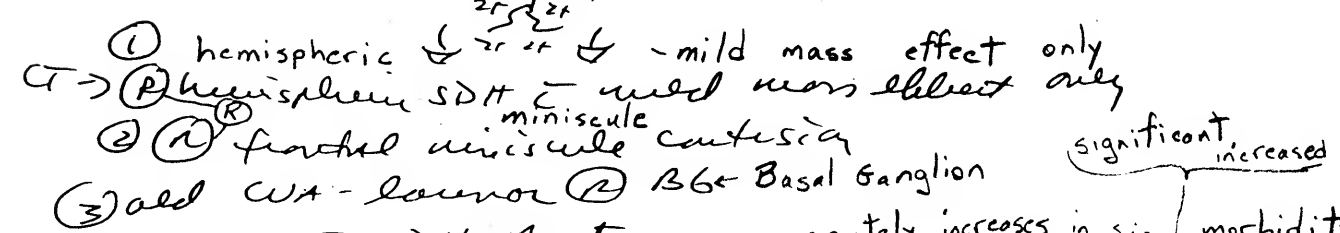 2+ 2+
① hemispheric 2+ 2+ - mild mass effect only
CT → Ⓡ hemispheric SDH c̄ mild mass effect only
Ⓡ miniscule
② Ⓡ frontal miniscule contusion
significant, increased
③ old CVA - lacunar Ⓡ BG ← Basal Ganglion
increases in morbidit